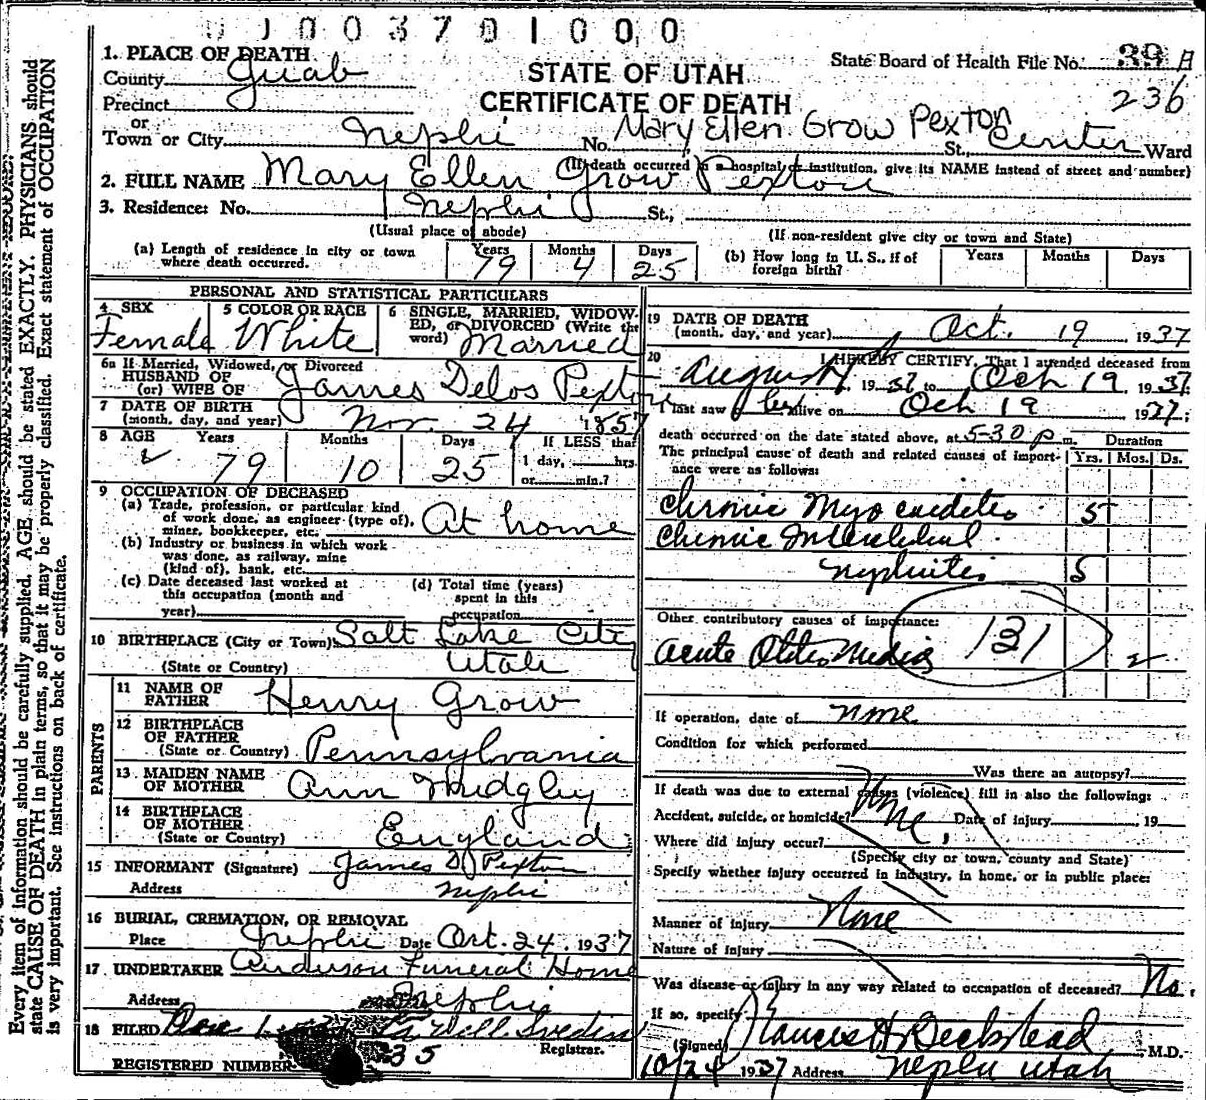 0 0 0 3 7 0 1 0 0 0
1. PLACE OF DEATH
County Juab
State Board of Health File No. 39 A
236
STATE OF UTAH
CERTIFICATE OF DEATH
Precinct
or
Town or City Nephi No. Mary Ellen Grow Pexton St., Center Ward
(If death occurred in a hospital or institution, give its NAME instead of street and number)
2. FULL NAME Mary Ellen Grow Pexton
3. Residence: No. Nephi St.,
(Usual place of abode) (If non-resident give city or town and State)
(a) Length of residence in city or town where death occurred. Years 79 Months 4 Days 25
(b) How long in U. S., if of foreign birth? Years Months Days
PERSONAL AND STATISTICAL PARTICULARS
4 SEX Female
5 COLOR OR RACE White
6 SINGLE, MARRIED, WIDOWED, or DIVORCED (Write the word) Married
6a If Married, Widowed, or Divorced
HUSBAND OF
(or) WIFE OF James Delos Pexton
7 DATE OF BIRTH
(month, day, and year) Nov. 24 1857
8 AGE Years 79 Months 10 Days 25 If LESS than
1 day, hrs.
or min.?
9 OCCUPATION OF DECEASED
(a) Trade, profession, or particular kind
of work done, as engineer (type of),
miner, bookkeeper, etc. At home
(b) Industry or business in which work
was done, as railway, mine
(kind of), bank, etc.
(c) Date deceased last worked at
this occupation (month and
year)
(d) Total time (years)
spent in this
occupation
10 BIRTHPLACE (City or Town) Salt Lake City
(State or Country) Utah
PARENTS
11 NAME OF
FATHER Henry Grow
12 BIRTHPLACE
OF FATHER
(State or Country) Pennsylvania
13 MAIDEN NAME
OF MOTHER Ann Midgley
14 BIRTHPLACE
OF MOTHER
(State or Country) England
15 INFORMANT (Signature) James D Pexton
Address Nephi
16 BURIAL, CREMATION, OR REMOVAL
Place Nephi Date Oct. 24. 1937
17 UNDERTAKER Anderson Funeral Home
Address Nephi
18 FILED Dec 1
Registrar.
REGISTERED NUMBER 35
19 DATE OF DEATH
(month, day, and year) Oct. 19 1937
20 I HEREBY CERTIFY, That I attended deceased from
August 1937 to Oct 19 1937.
I last saw her alive on Oct 19 1937;
death occurred on the date stated above, at 5-30 p m. Duration
The principal cause of death and related causes of importance were as follows: Yrs. Mos. Ds.
Chronic Myocarditis 5
Chronic Interstitial
Nephritis 5
Other contributory causes of importance: 131
acute Otitis Media 2
If operation, date of none
Condition for which performed
Was there an autopsy?
If death was due to external causes (violence) fill in also the following:
Accident, suicide, or homicide? None, Date of injury 19
Where did injury occur?
(Specify city or town, county and State)
Specify whether injury occurred in industry, in home, or in public place:
Manner of injury None
Nature of injury
Was disease or injury in any way related to occupation of deceased? No.
If so, specify
(Signed) Francis H Beckstead M.D.
10/24 1937 Address Nephi Utah
Every item of information should be carefully supplied. AGE should be stated EXACTLY. PHYSICIANS should
state CAUSE OF DEATH in plain terms, so that it may be properly classified. Exact statement of OCCUPATION
is very important. See instructions on back of certificate.